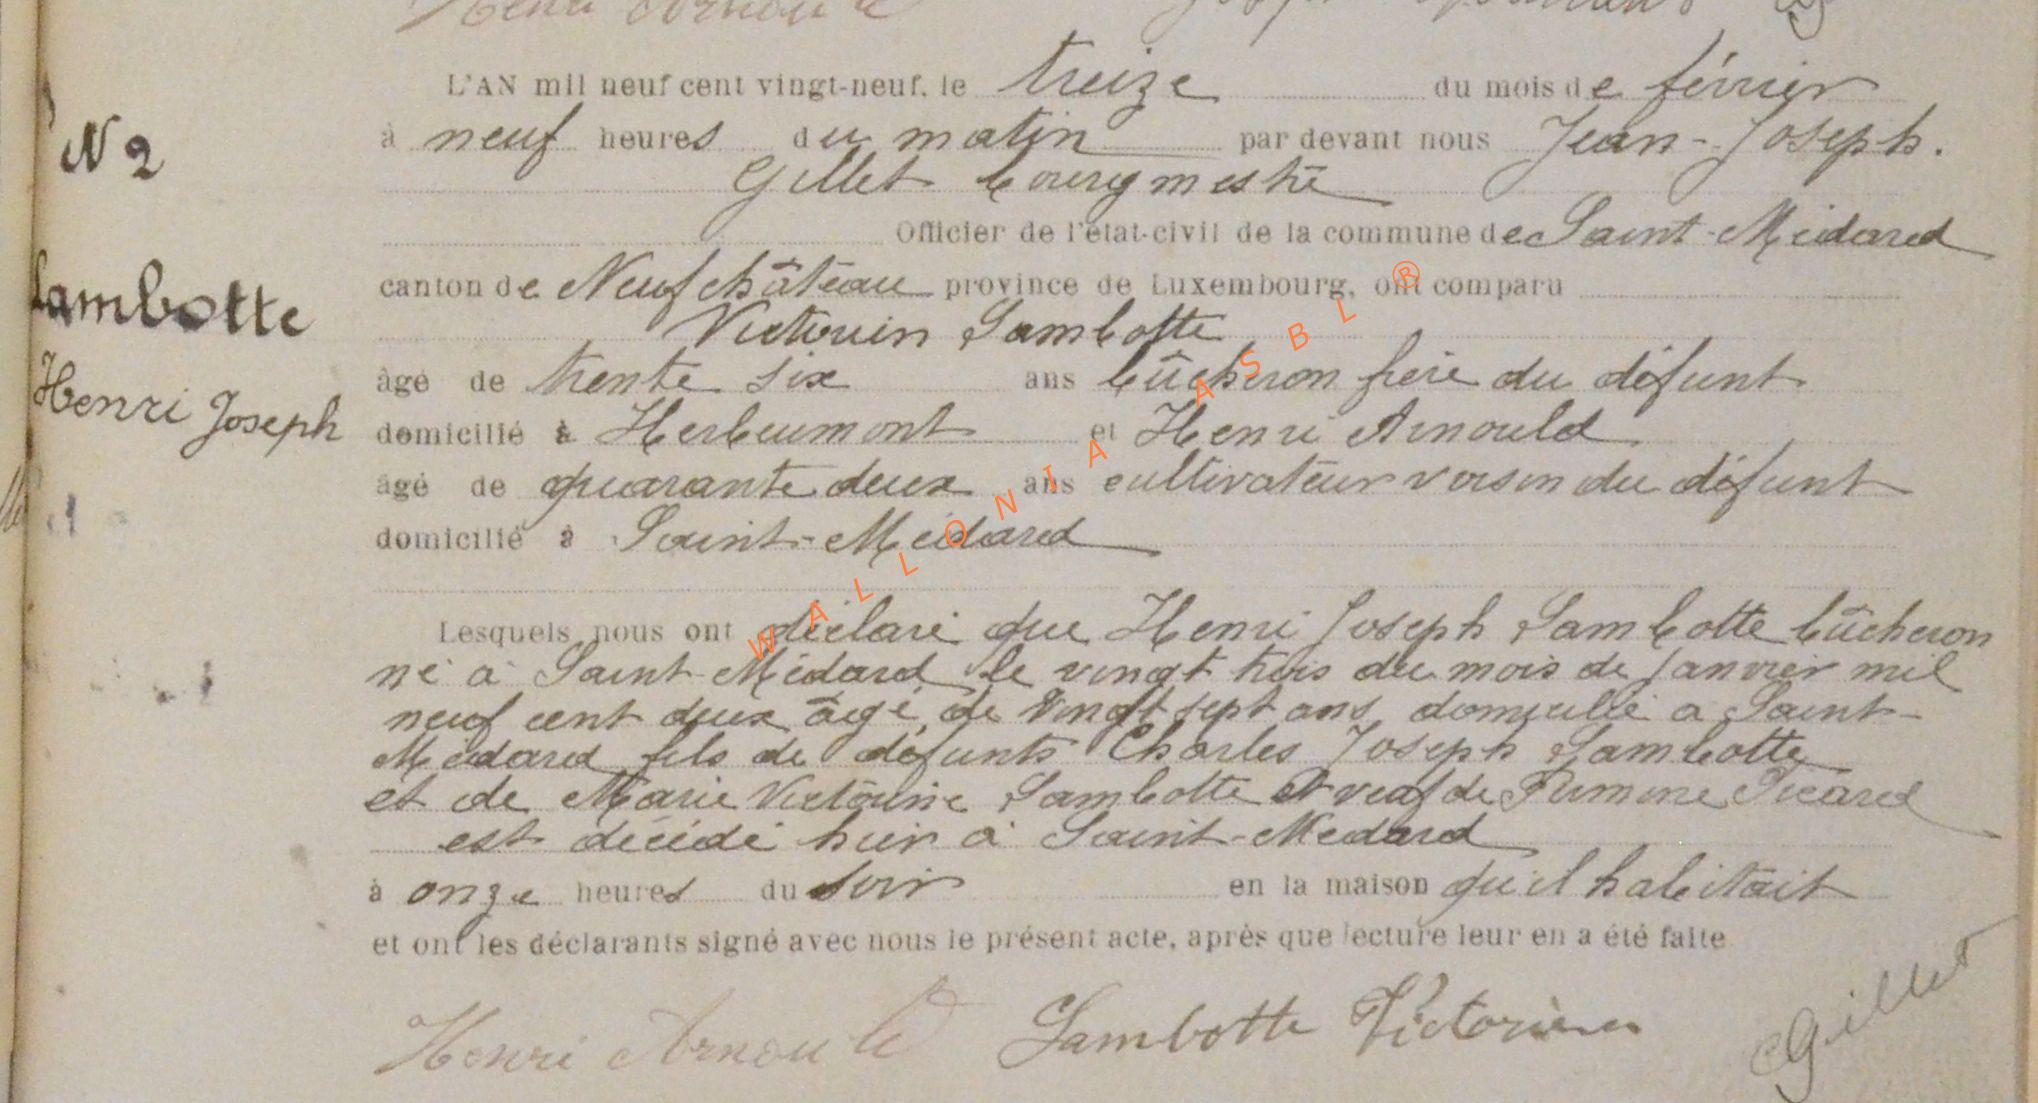 Henri Arnould
N 2
Lambotte
Henri Joseph
L'AN mil neuf cent vingt-neuf, le treize du mois de février
à neuf heures du matin par devant nous Jean-Joseph.
Gillet bourgmestre
Officier de l'état-civil de la commune de Saint-Médard
canton de Neufchâteau province de Luxembourg, ont comparu
Victorin Lambotte
âgé de trente six ans bûcheron frère du défunt
domicilié à Herbeumont et Henri Arnould
âgé de quarante deux ans cultivateur voisin du défunt
domicilié à Saint-Médard
Lesquels nous ont déclaré que Henri Joseph Lambotte bûcheron
né à Saint-Médard le vingt trois du mois de janvier mil
neuf cent deux âgé de vingt sept ans domicilié à Saint-
Médard fils de défunts Charles Joseph Lambotte
et de Marie Victorine Lambotte veuf de Picard
est décédé hier à Saint-Médard
à onze heures du soir en la maison qu'il habitait
et ont les déclarants signé avec nous le présent acte, après que lecture leur en a été faite
Henri Arnould Lambotte Victorin Gillet
WALLONIA ASBL ®